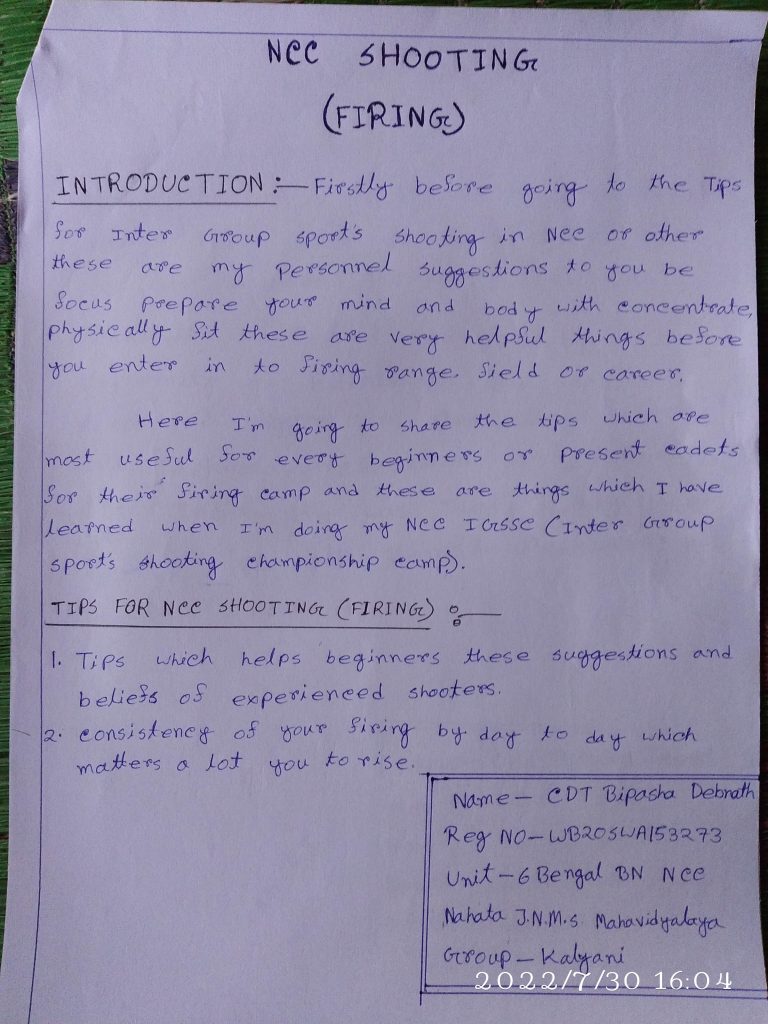 NCC SHOOTING
(FIRING)
INTRODUCTION :— Firstly before going to the Tips
for Inter Group sport's shooting in NCC or other
these are my personnel suggestions to you be
focus prepare your mind and body with concentrate,
physically fit these are very helpful things before
you enter in to firing range, field or career.
Here I'm going to share the tips which are
most useful for every beginners or present cadets
for their firing camp and these are things which I have
learned when I'm doing my NCC IGSSC (Inter Group
sport's shooting championship camp).
TIPS FOR NCC SHOOTING (FIRING) :—
1. Tips which helps beginners these suggestions and
beliefs of experienced shooters.
2. consistency of your firing by day to day which
matters a lot you to rise.
Name — CDT Bipasha Debnath
Reg NO — WB20SWA153273
Unit — 6 Bengal BN NCC
Nahata J.N.M.S Mahavidyalaya
Group — Kalyani
2022/7/30 16:04